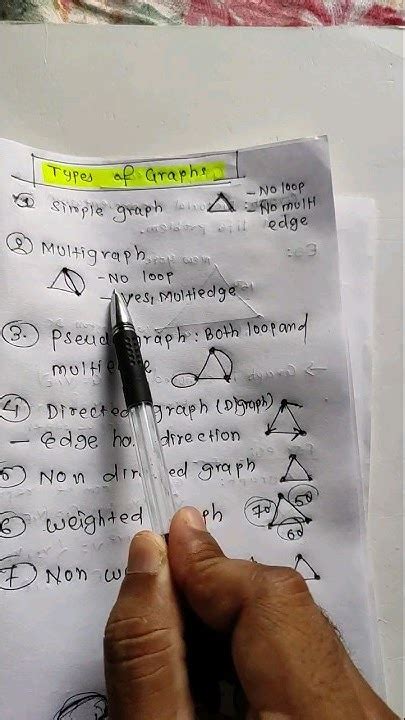 Types of Graphs
① Simple graph - No loop
- No multi
edge
② Multigraph
- No loop
- yes, Multiedge
③. Pseud graph : Both loop and
multie
④ Directed graph (Digraph)
- Edge ha direction
⑤ Non di ed graph
⑥ Weighted ph 70 50
60
⑦ Non w